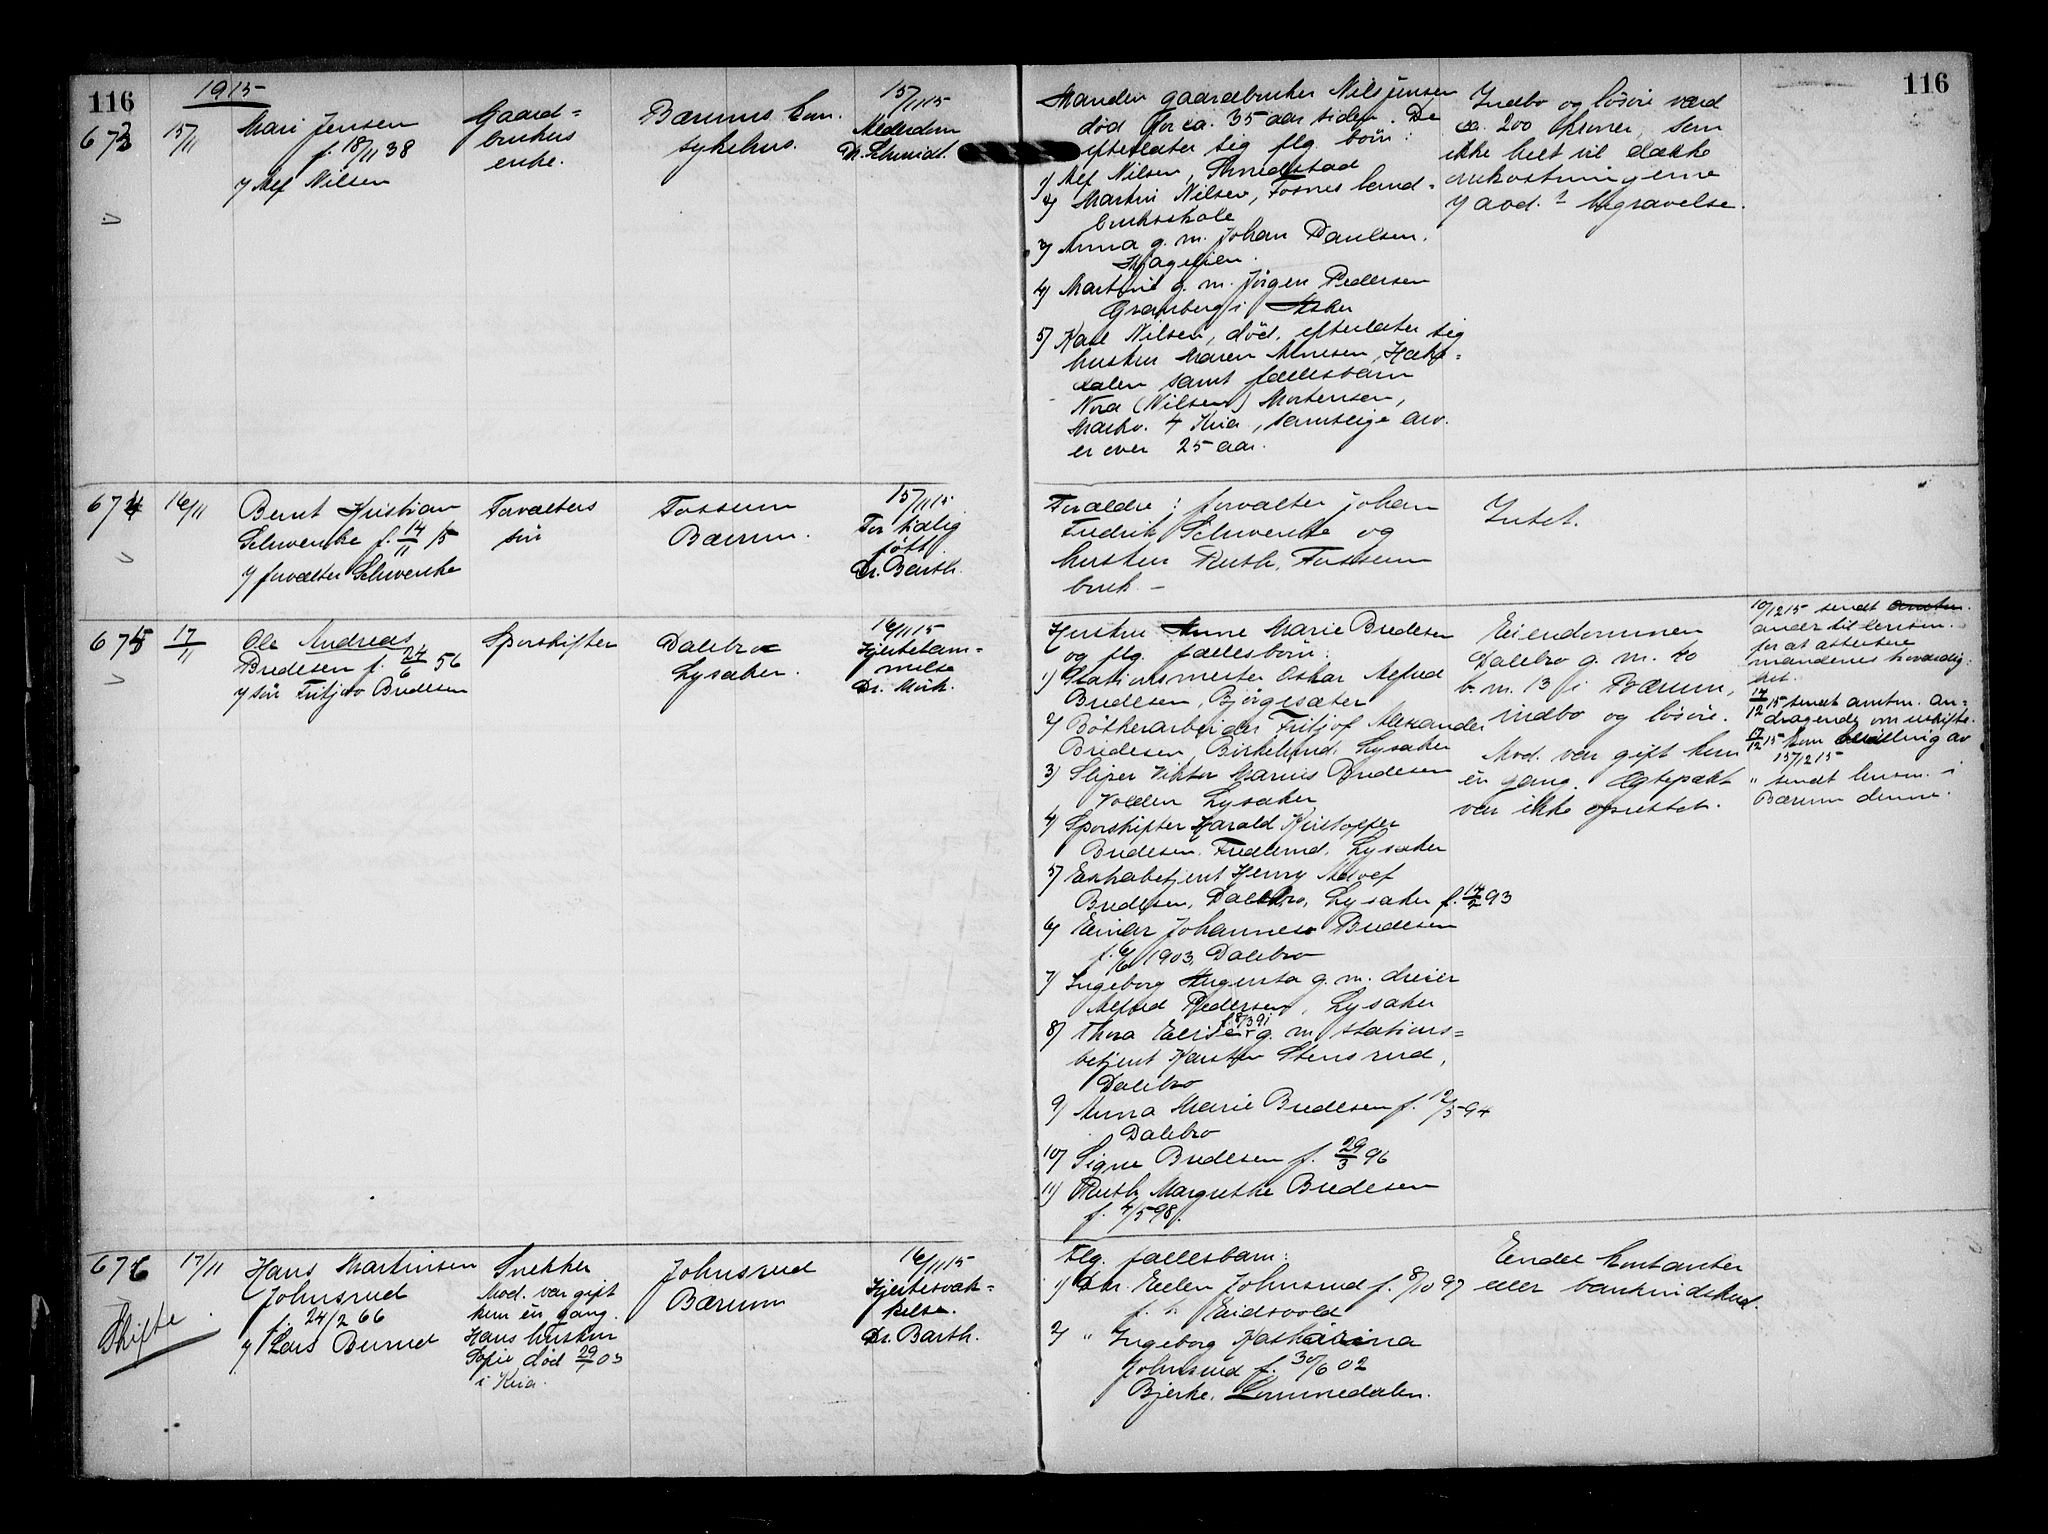 116
1915
673
15/11
Mari Jensen
f. 18/11 38
v/ Alf Nilsen
Gaard=
brukers
enke.
Bærums kom.
sykehus.
15/11 15
Alderdom
Dr. Schmidt.
674
16/11
Bernt Kristian
Schwencke f. 14/11 15
v/ forvalter Schwencke
Forvalters
søn
Fossum
Bærum.
15/11 15
For tidlig
født.
Dr. Barth.
675
17/11
Ole Andreas
Bredesen f. 24/6 56
v/ søn Fritjov Bredesen
Sporskifter
Dalebro
Lysaker.
16/11 15
Hjertelam=
melse
Dr. Mürk.
676
17/11
Skifte
Hans Martinsen
Johnsrud
f. 24/2 66
v/ Lars Burud
Snekker
Mod. var gift
kun én gang.
Hans hustru
Sofie død 29/1 03
i Kria.
Johnsrud
Bærum
16/11 15
Hjertesvak-
kelse.
Dr. Barth.
116
Manden gaardbruker Nils Jensen
død for ca. 35 aar siden. De
efterlater sig flg. børn:
1) Alf Nilsen, Smedstad
2) Martin Nilsen, Fosnes land=
bruksskole
3) Anna g. m. Johan Paulsen,
4) Martine g. m. Jørgen Pedersen
Granberg i Asker
5) Karl Nilsen, død, efterlater sig
hustru Maren Nilsen, Hake=
dalen samt fællesbarn
Nora (Nilsen) Mortensen,
Markv. 4 Kria, samtlige arv.
er over 25 aar.
Indbo og løsøre værd
ca. 200 kroner, som
ikke helt vil dække
omkostningerne
v/ avd.s begravelse.
Forældre: forvalter Johan
Fredrik Schwencke og
hustru Ruth, Fossum
bruk. -
Intet.
Hustru Anne Marie Bredesen
og flg. fællesbørn:
1) Stationsmester Oskar Alfred
Bredesen, Bjørgesæter
2) Bøtkerarbeider Fritjof Alexander
Bredesen, Birkelund, Lysaker
3) Sliper Viktor Marius Bredesen
Volden Lysaker
4) Sporskifter Harald Kristoffer
Bredesen, Fredlund, Lysaker
5) Extrabetjent Henry Adolf
Bredesen, Dalebro, Lysaker f. 14/2 93
6) Einar Johannes Bredesen
f. 6/6 1903, Dalebro
7) Ingeborg Augusta g. m. dreier
Alfred Pedersen, Lysaker
f. 8/3 91
8) Thora Elise g. m. stations=
betjent Karsten Stensrud,
Dalebro
9) Anna Marie Bredesen f. 12/5 94
Dalebro
10) Signe Bredesen f. 29/3 96
11) Ruth Margrethe Bredesen
f. 4/5 98.
Eiendommen
Dalebro g. m. 40
b. m. 13 i Bærum,
indbo og løsøre.
Mod. var gift kun
én gang. Ægtepakt
var ikke oprettet.
10/12 15 sendt
for at attestere
mandenes troværdig=
het.
17/12 15 sendt amtm. an=
dragende om uskifte.
17/12 15 kom bevilling av
15/12 15
" sendt lensm. i
Bærum denne.
Flg. fællesbarn:
1) Dtr. Ellen Johnsrud f. 8/10 97
Eidsvold
2) " Ingeborg Katharina
Johnsrud f. 30/6 02
Bjerke, Lommedalen.
Endel kontanter
eller bankindskud.